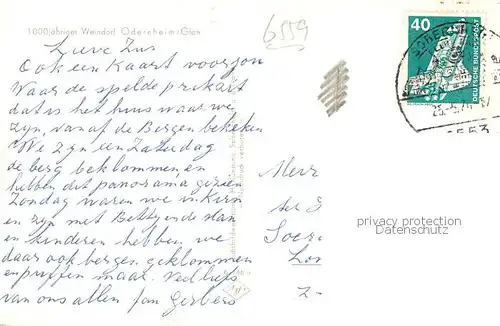 1000jähriges Weindorf Odernheim/Glan
6559
40
DEUTSCHE BUNDESPOST
Lieve Lus
Ook een Kaart voor jou
Waar de speldeprik art
dat is het huis waar we
zyn, vanaf de Bergen bekeken
We zyn een Zaterdag
de berg beklommen, en
dit panorama gezien
Zondag waren we in Kirn
en zyn met Betty en de man
en kinderen hebben we
daar ook bergen geklommen
en puffen maar. Veel liefs
van ons allen Jan Gerbers
Mevr
Soe
Lon
privacy protection
Datenschutz
6553